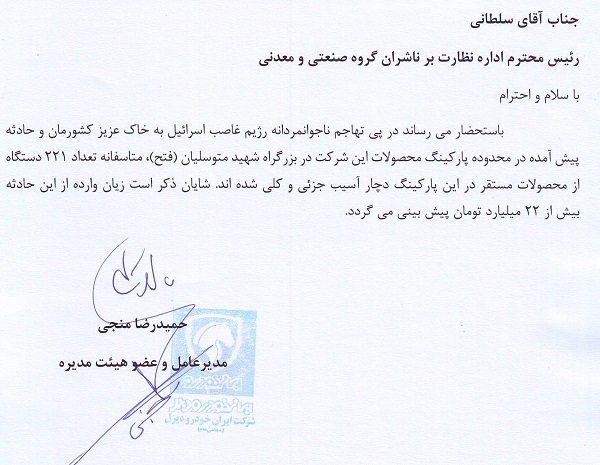 جناب آقای سلطانی
رئیس محترم اداره نظارت بر ناشران گروه صنعتی و معدنی
با سلام و احترام
باستحضار می رساند در پی تهاجم ناجوانمردانه رژیم غاصب اسرائیل به خاک عزیز کشورمان و حادثه
پیش آمده در محدوده پارکینگ محصولات این شرکت در بزرگراه شهید متوسلیان (فتح)، متاسفانه تعداد ۲۲۱ دستگاه
از محصولات مستقر در این پارکینگ دچار آسیب جزئی و کلی شده اند. شایان ذکر است زیان وارده از این حادثه
بیش از ۲۲ میلیارد تومان پیش بینی می گردد.
حمیدرضا منجی
مدیرعامل و عضو هیئت مدیره
ایران خودرو دیزل
شرکت ایران خودرو دیزل
(سهامی عام)